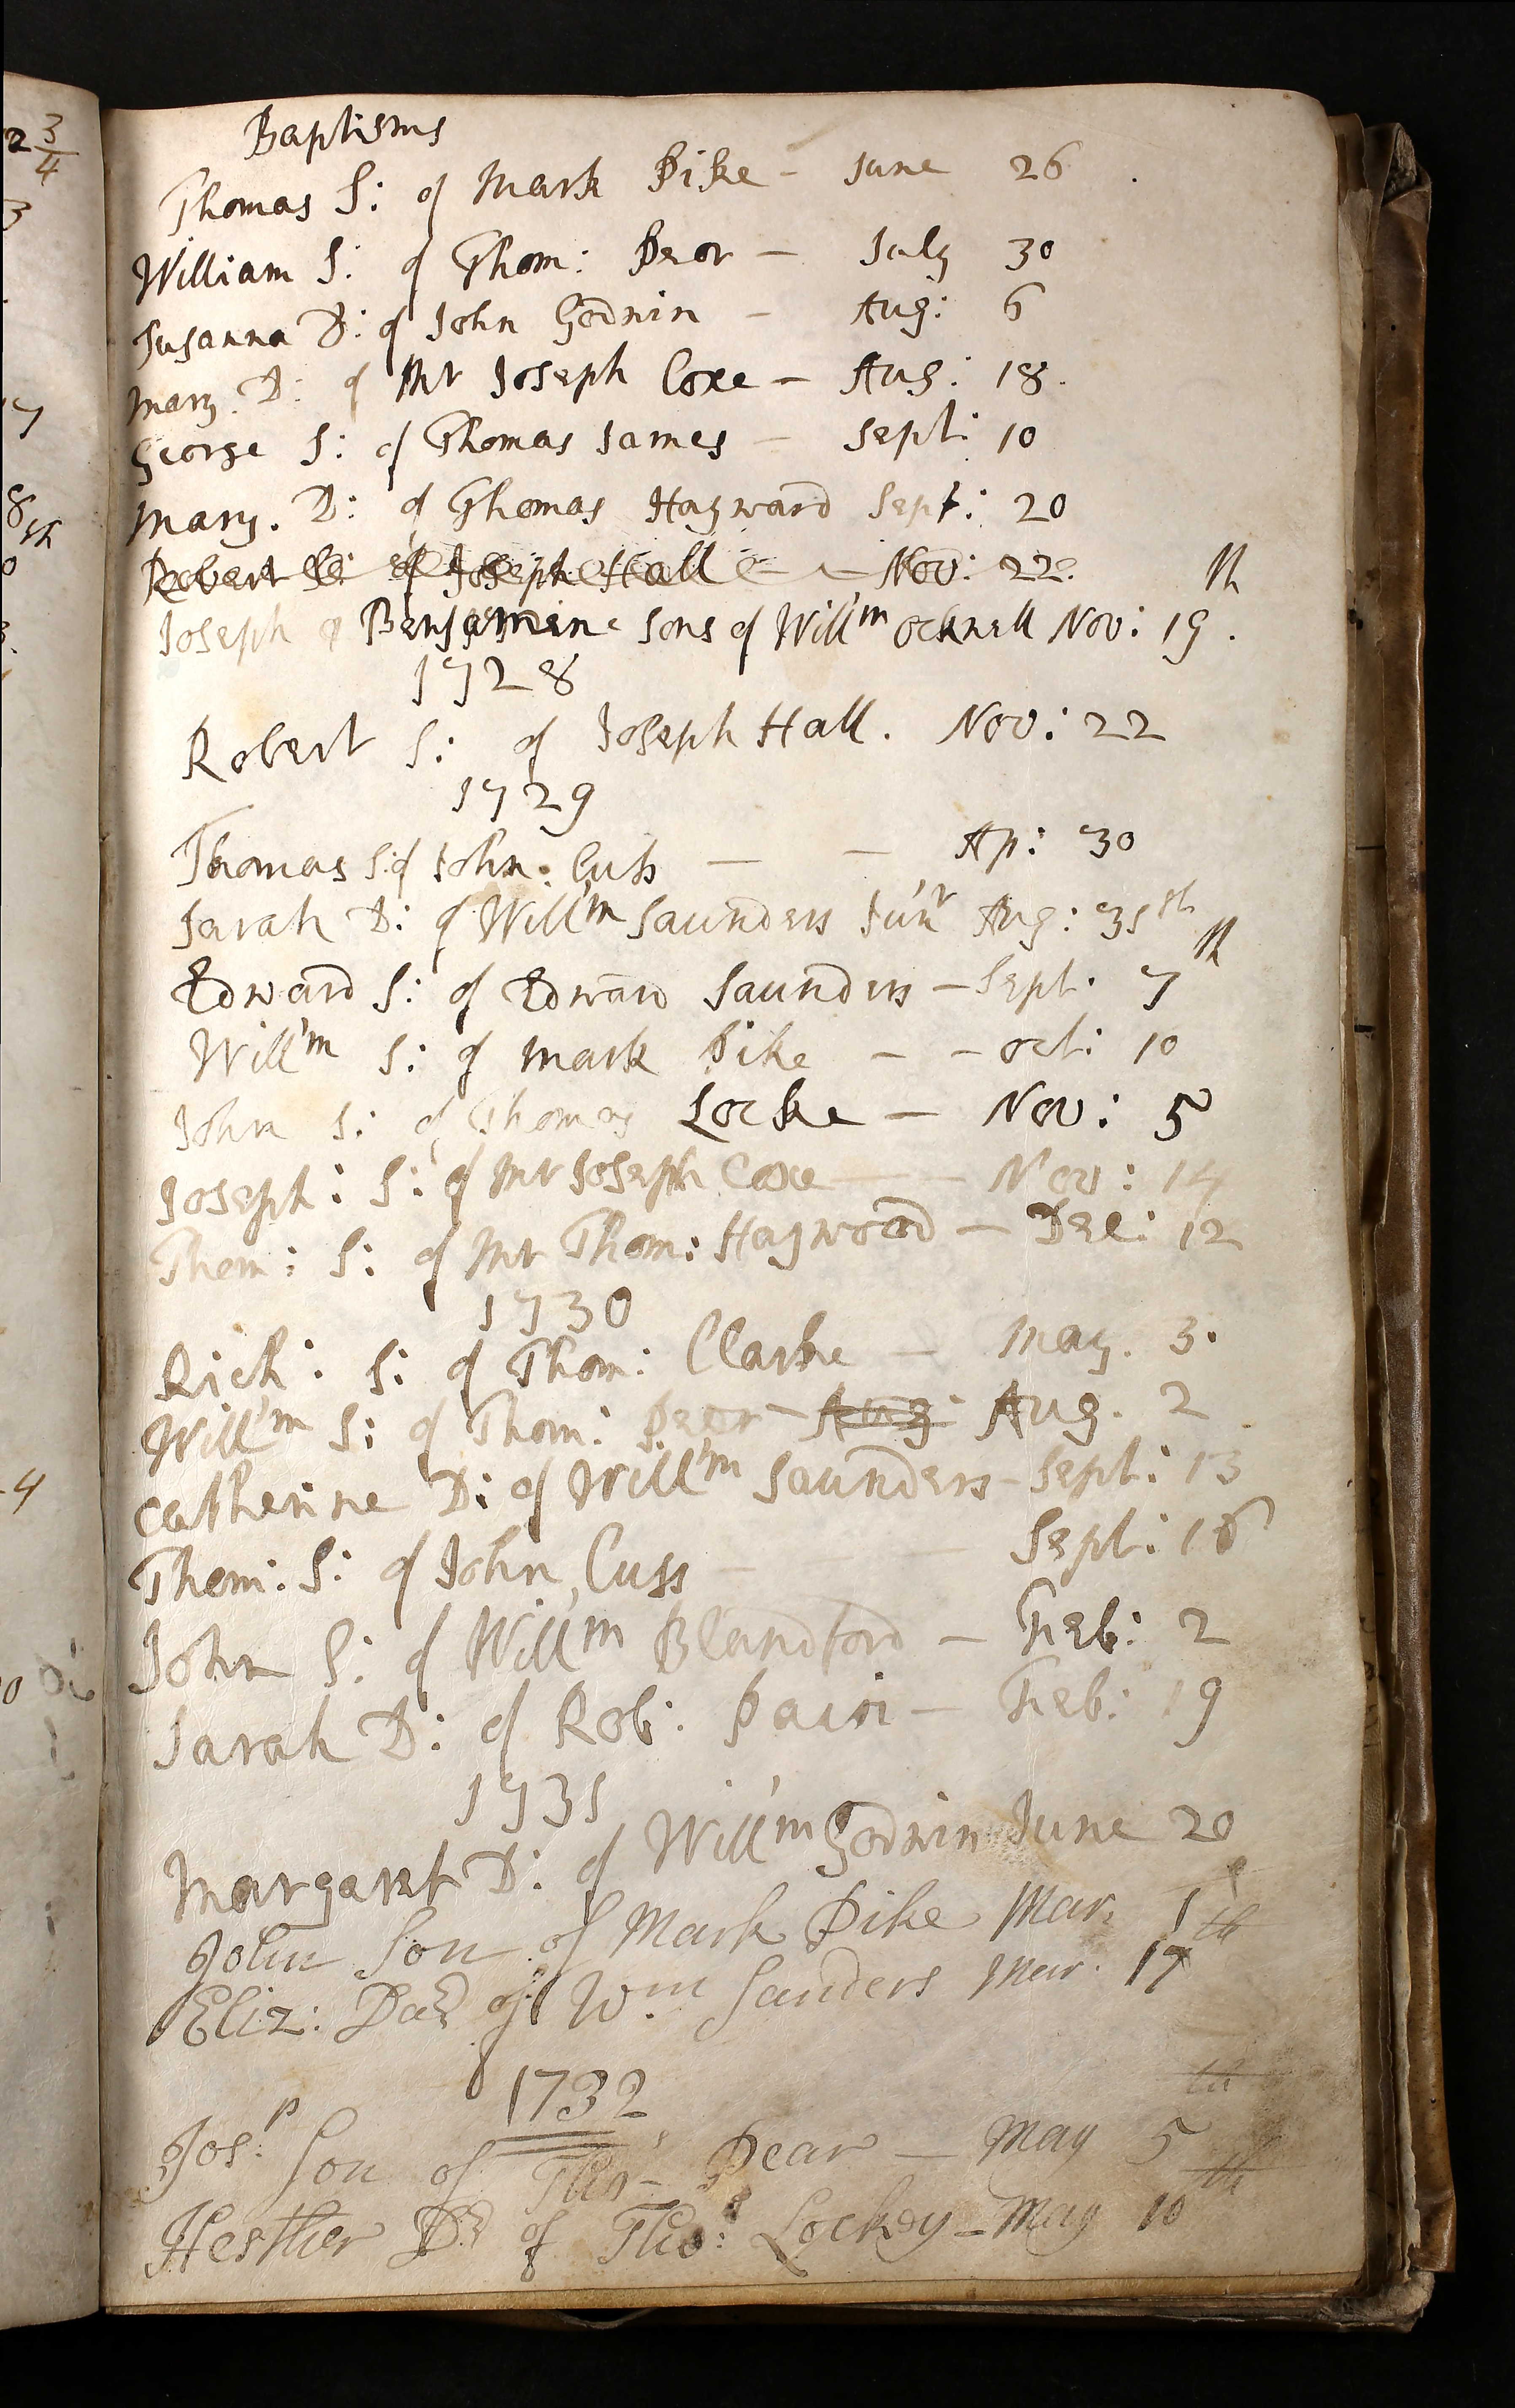 Baptisms
Thomas S: of Mark Pike - June 26
William S: of Thom: Peor - July 30
Susanna D: of John Godwin - Aug: 6
Mary. D: of Mr Joseph Coxe - Aug: 18.
George S: of Thomas James - Sept: 10
Mary. D: of Thomas Hayward Sept: 20
Robert S: of Joseph Hall - Nov: 22
Joseph & Benjamine Sons of Will'm Ocknell Nov: 19th.
1728
Robert S: of Joseph Hall. Nov: 22
1729
Thomas S: of John: Cuss - - Ap: 30
Sarah D: of Will'm Saunders Jun'r Aug: 31st
Edward S: of Edward Saunders - Sept. 7th
Will'm S: of Mark Pike - - Oct: 10
John S: of Thomas Locke - Nov: 5
Joseph: S: of Mr Joseph Coxe - - Nov: 14
Thom: S: of Mr Thom: Haywood - Dec: 12
1730
Rich: S: of Thom: Clarke - May. 3.
Will'm S: of Thom: Peor - Aug: Aug. 2
Catherine D: of Will'm Saunders - Sept: 13
Thom: S: of John Cuss - - Sept: 16
John S: of Will'm Blandford - Feb: 2
Sarah D: of Rob: - Feb: 19
1731
Margaret D: of Will'm Godwin June 20
John Son of Mark Pike Mar: 1
Eliz: Dar of Wm Sanders Mar. 17th
1732
Josp: Son of Tho's Pear - May 5th
Hesther Dr of Tho's: Lockey - May 10th
2 3/4
3
7
8th
0
4
0